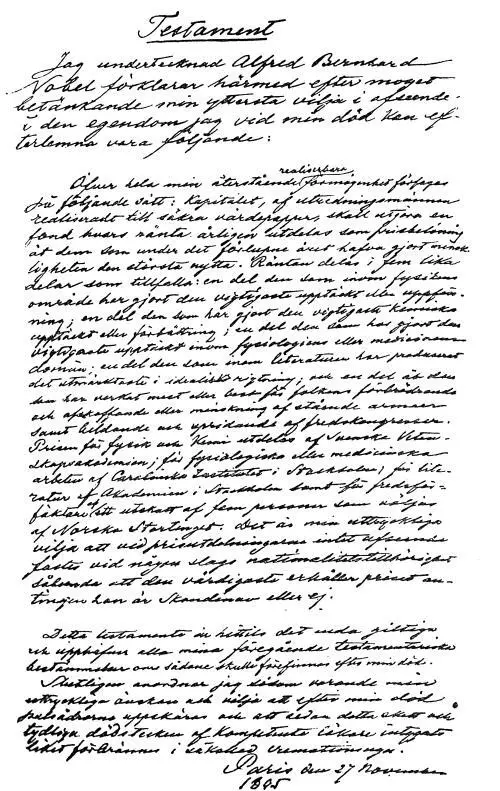 Testament
Jag undertecknad Alfred Bernhard
Nobel förklarar härmed efter moget
betänkande min yttersta vilja i afseende
i den egendom jag vid min död kan ef-
terlemna vara följande:
realiserbara
Öfver hela min återstående förmögenhet förfoges
på följande sätt: Kapitalet, af utredningsmännen
realiseradt till säkra värdepapper, skall utgöra en
fond hvars ränta årligen utdelas som prisbelöning
åt dem som under det förlupne året hafva gjort mensk-
ligheten den största nytta. Räntan delas i fem lika
delar som tillfalla: en del den som inom fysikens
område har gjort den vigtigaste upptäckt eller uppfin-
ning; en del den som har gjort den vigtigaste kemiska
upptäckt eller förbättring; en del den som har gjort den
vigtigaste upptäckt inom fysiologiens eller medicinens
domän; en del den som inom literaturen har producerat
det utmärktaste i idealisk rigtning; och en del åt den
som har verkat mest eller best för folkens förbrödrande
och afskaffande eller minskning af stående armeer
samt bildande och spridande af fredskongresser.
Prisen för fysik och kemi utdelas af Svenska Veten-
skapsakademien; för fysiologiska eller medicinska
arbeten af Carolinska Institutet i Stockholm; för lite-
ratur af Akademien i Stockholm samt för fredsför-
fäktare af ett utskott af fem personer som väljas
af Norska Stortinget. Det är min uttryckliga
vilja att vid prisutdelningarne intet afseende
fästes vid någon slags nationalitetstillhörighet
sålunda att den värdigaste erhåller priset an-
tingen han är Skandinav eller ej.
Detta testamente är hittills det enda giltiga
och upphäfver alla mina föregående testamentariska
bestämmelser om sådane skulle förefinnas efter min död.
Slutligen anordnar jag såsom varande min
uttryckliga önskan och vilja att efter min död
pulsådrorna uppskäras och att sedan detta skett och
tydliga dödstecken af kompetente läkare intygats
liket förbrännes i såkallad cremationsugn.
Paris den 27 November
1895